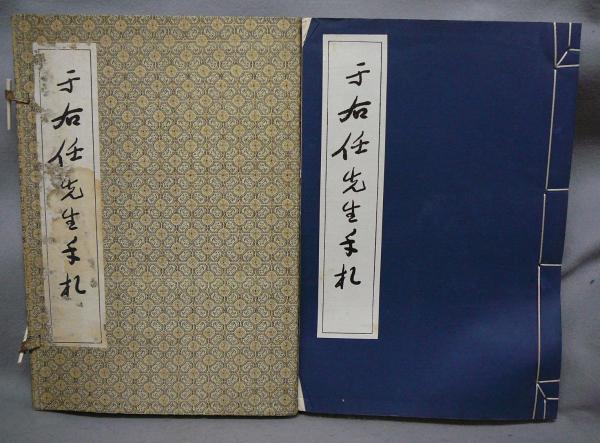 于右任先生手札
于右任先生手札